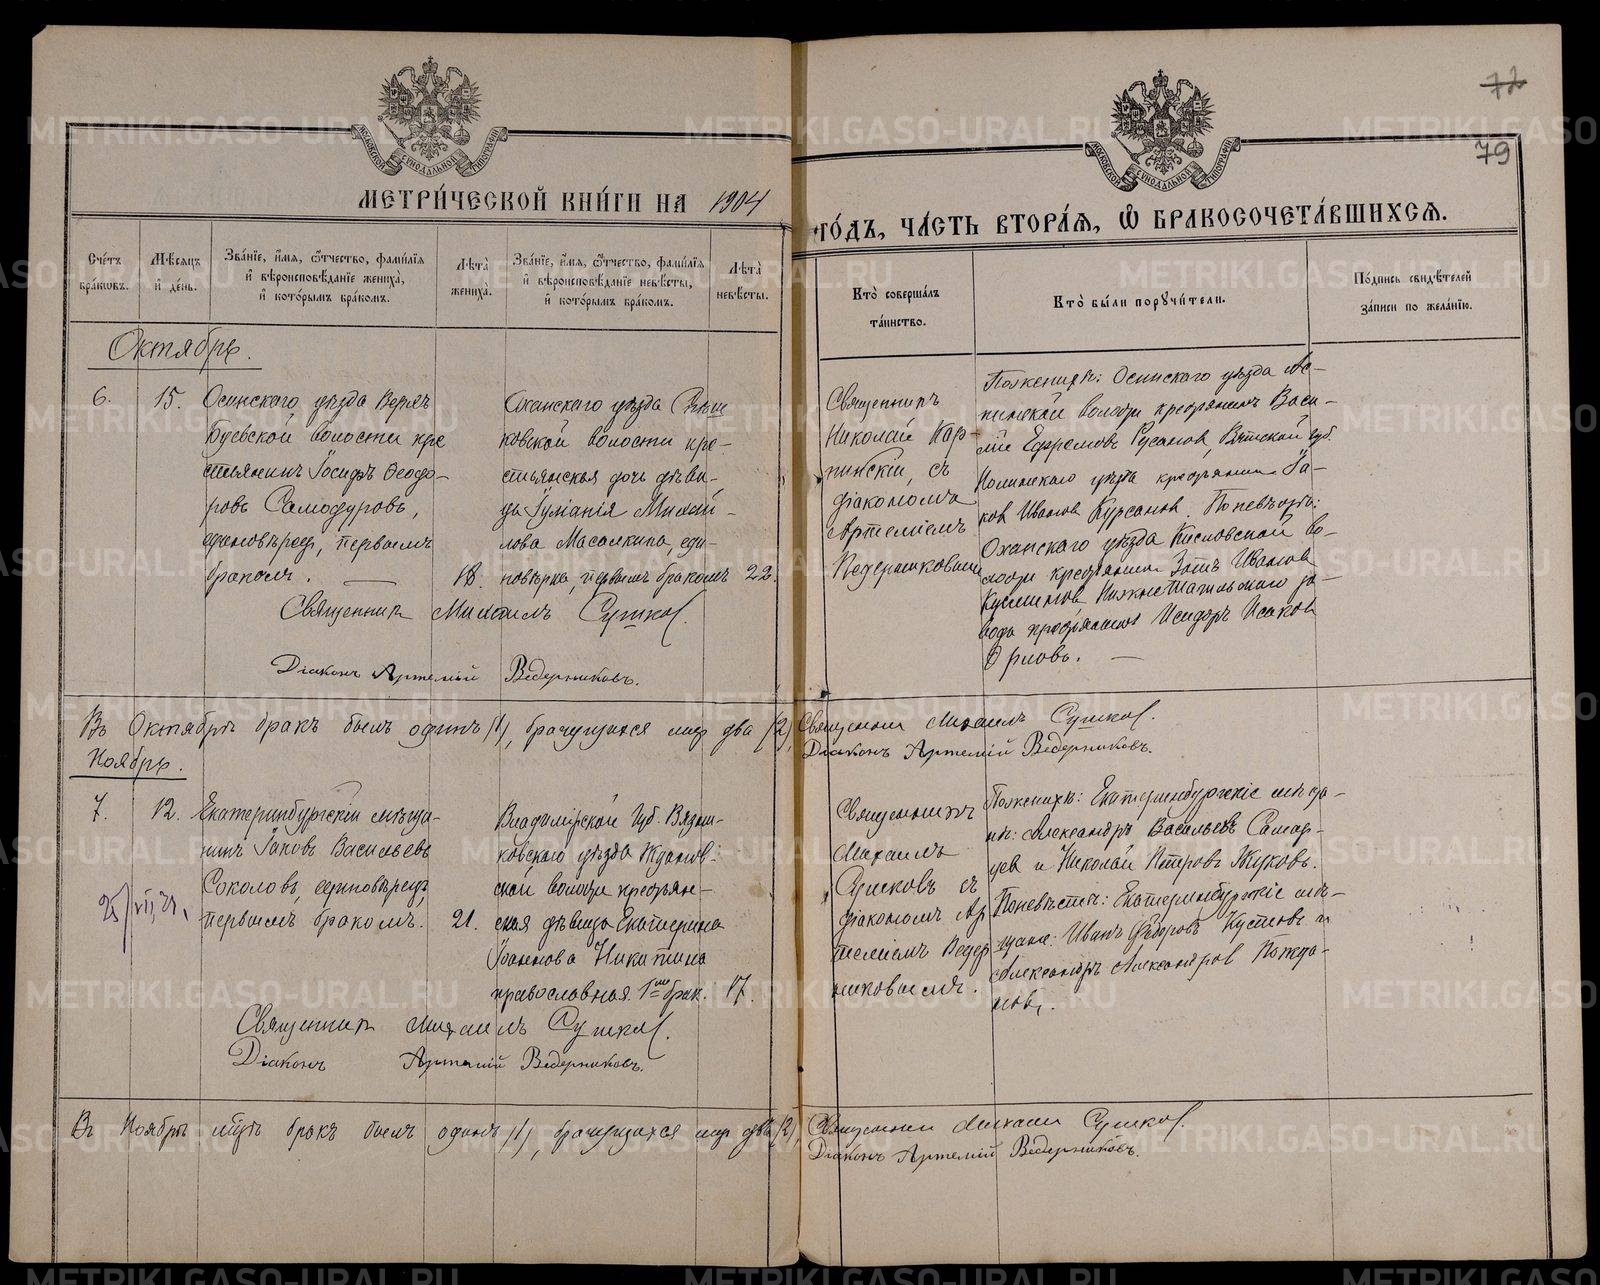 72
79
МОСКОВСКОЙ СУНОДАЛЬНОЙ ТИПОГРАФІИ
МОСКОВСКОЙ СУНОДАЛЬНОЙ ТИПОГРАФІИ
МЕТРИ́ЧЕСКОЙ КНИ́ГИ НА 1904
ГО́ДЪ, ЧА́СТЬ ВТОРА́Ѧ, Ѿ БРАКОСОЧЕТА́ВШИХСѦ.
Сче́тъ бра́ковъ.
Мѣ́сяцъ и҆ де́нь.
Зва́нїе, и҆́мѧ, ѻ҆́тчество, фами́лїѧ и҆ вѣроисповѣ́данїе жениха̀, и҆ кото́рымъ бра́комъ.
Лѣ́та жениха̀.
Зва́нїе, и҆́мѧ, ѻ҆́тчество, фами́лїѧ и҆ вѣроисповѣ́данїе невѣ́сты, и҆ кото́рымъ бра́комъ.
Лѣ́та невѣ́сты.
Кто̀ соверша́лъ та́инство.
Кто̀ бы́ли порꙋчи́тели.
По́дпись свидѣ́телей за́писи по жела́нїю.
Октябрь.
6.
15.
Осинскаго уѣзда Верхъ
Буевской волости кре
стьянинъ Іосифъ Ѳеодо-
ровъ Самодуровъ,
единовѣрец, первымъ
бракомъ.
18.
Оханскаго уѣзда
ковской волости кре-
стьянская дочь дѣви-
ца Іуліанія Михай-
лова Масалкина, еди-
новѣрка, первымъ бракомъ
22.
Священникъ
Николай Кар-
пинскій, съ
діакономъ
Артеміемъ
Ведерниковымъ
По женихѣ: Осинскаго уѣзда Ас-
пинской волости крестьянинъ Васи-
лій Ефремовъ Русановъ, Вятской губ.
Нолинскаго уѣзда крестьянинъ Іа-
ковъ Ивановъ Курсановъ. По невѣстѣ:
Оханскаго уѣзда Кисловской во-
лости крестьянинъ Ивановъ
Нижнетагильскаго за-
вода крестьянинъ Исидоръ Исаковъ
Орловъ.
Священник Михаилъ Сушков.
Діаконъ Артемій Ведерниковъ.
Въ Октябрѣ бракъ былъ одинъ (1), брачущихся лиц два (2)
Священник Михаилъ Сушков.
Діаконъ Артемій Ведерниковъ.
Ноябрь.
7.
12.
Екатеринбургскій мѣща-
нинъ Іаковъ Васильевъ
Соколовъ, единовѣрецъ,
первымъ бракомъ.
21.
25/VII 21.
Владимірской Губ. Вязни-
ковскаго уѣзда Ждановъ-
ской волости крестьян-
ская дѣвица Екатерина
Іоаннова Никитина
православная. 1ым брак.
17.
Священникъ
Михаилъ
Сушковъ съ
діакономъ Ар
теміемъ Ведер
никовымъ.
По женихѣ: Екатеринбургскіе мѣща-
не: Александръ Васильевъ Самар-
цев и Николай Петровъ Жуковъ.
По невѣстѣ: Екатеринбургскіе мѣ-
щане: Иванъ Ѳедоровъ Кустовъ и
Александръ Александров Пожда-
новъ.
Священник Михаилъ Сушков.
Діаконъ Артемій Ведерниковъ.
Въ Ноябрѣ мѣсц бракъ былъ одинъ (1), брачущихся лиц два (2),
Священник Михаил Сушков.
Діаконъ Артемій Ведерниковъ.
METRIKI.GASO-URAL.RU